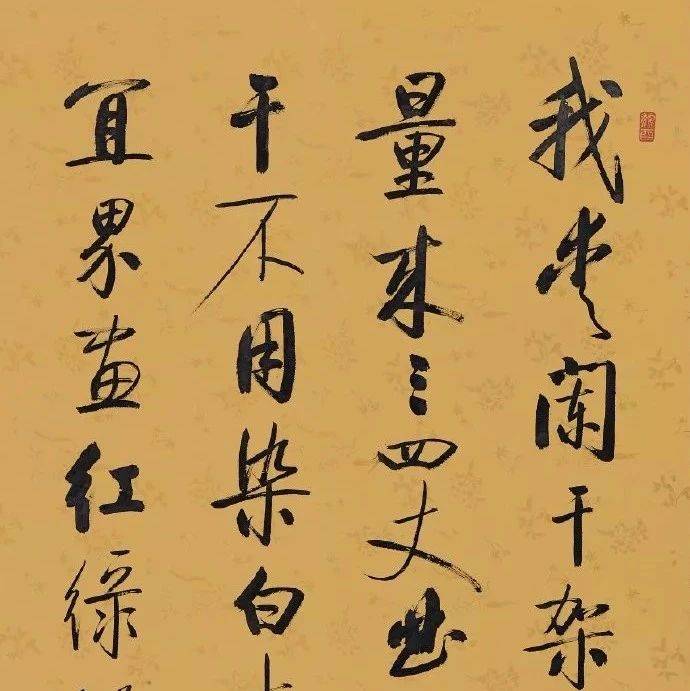 我爱阑干架
量成三四丈曲
干不用染白
宜界画红绿